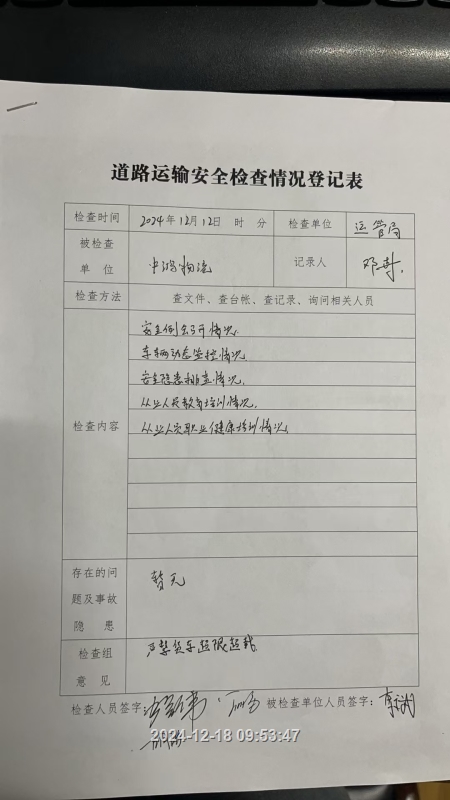 道路运输安全检查情况登记表
检查时间 2024年12月12日 时 分 检查单位 运管局
被检查单位 中鸿物流 记录人 邓
检查方法 查文件、查台帐、查记录、询问相关人员
检查内容
安全例会召开情况.
车辆动态监控情况.
安全隐患排查情况.
从业人员教育培训情况.
从业人员职业健康培训情况
存在的问题及事故隐患 暂无
检查组意见 严禁货车超限超载
检查人员签字: 被检查单位人员签字:
2024-12-18 09:53:47